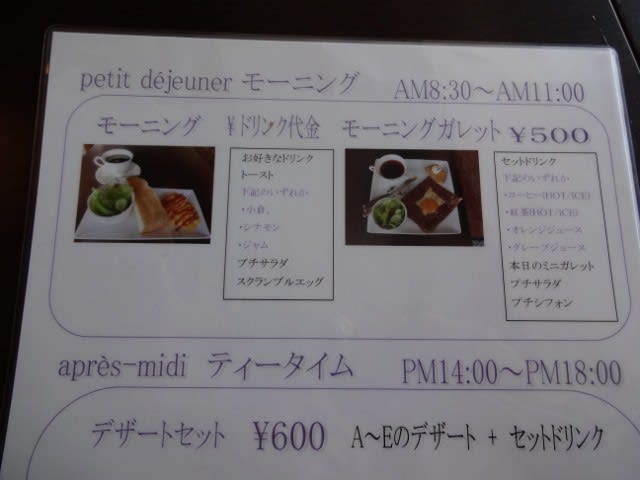 petit déjeuner モーニング AM8:30～AM11:00
モーニング ¥ドリンク代金
お好きなドリンク
トースト
下記のいずれか
・小倉、
・シナモン
・ジャム
プチサラダ
スクランブルエッグ
モーニングガレット ¥500
セットドリンク
下記のいずれか
・コーヒー(HOT/ICE)
・紅茶(HOT/ICE)
・オレンジジュース
・グレープジュース
本日のミニガレット
プチサラダ
プチシフォン
après-midi ティータイム PM14:00～PM18:00
デザートセット ¥600 A～Eのデザート + セットドリンク